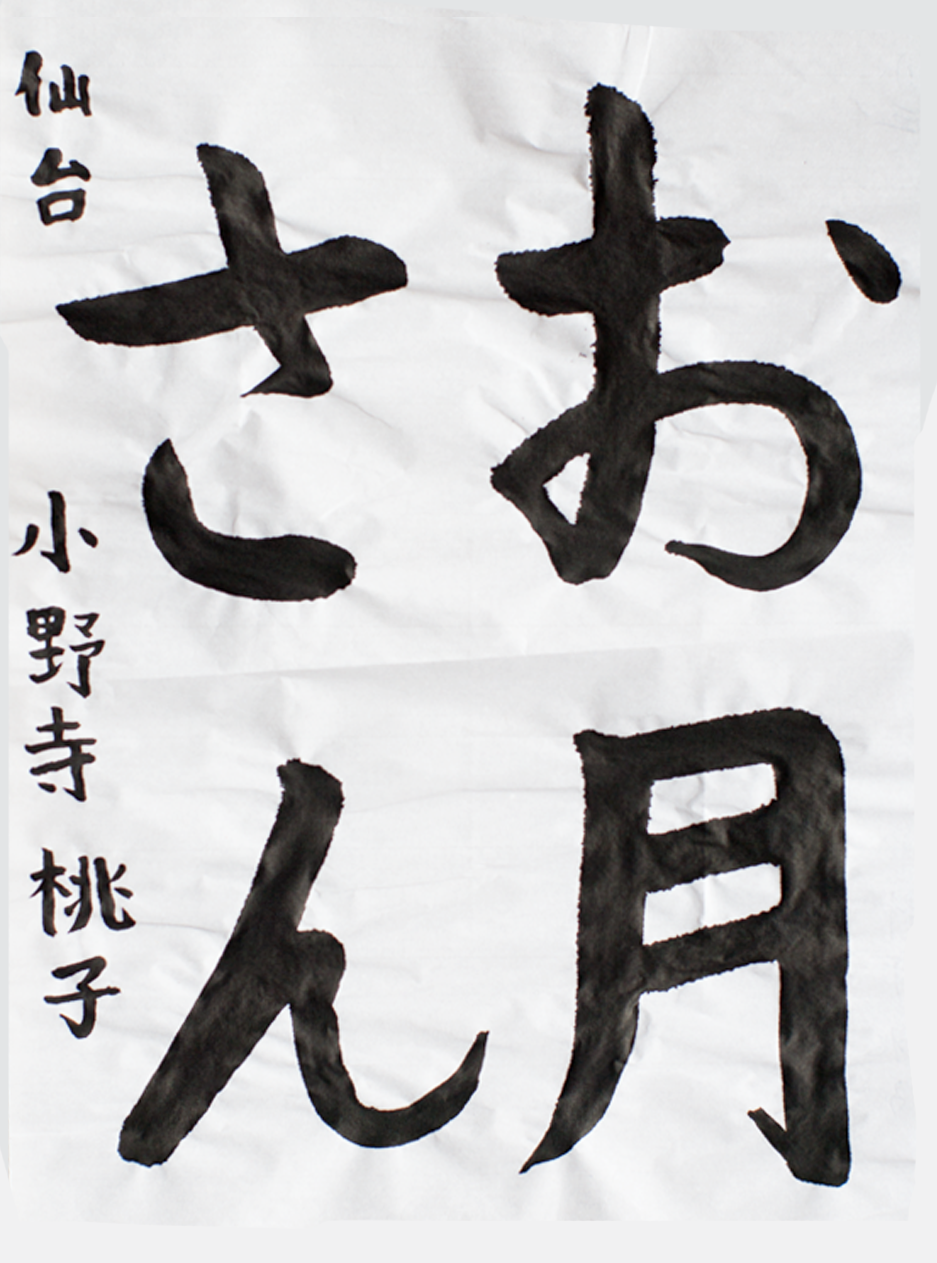 お月
さん
仙台 小野寺 桃子